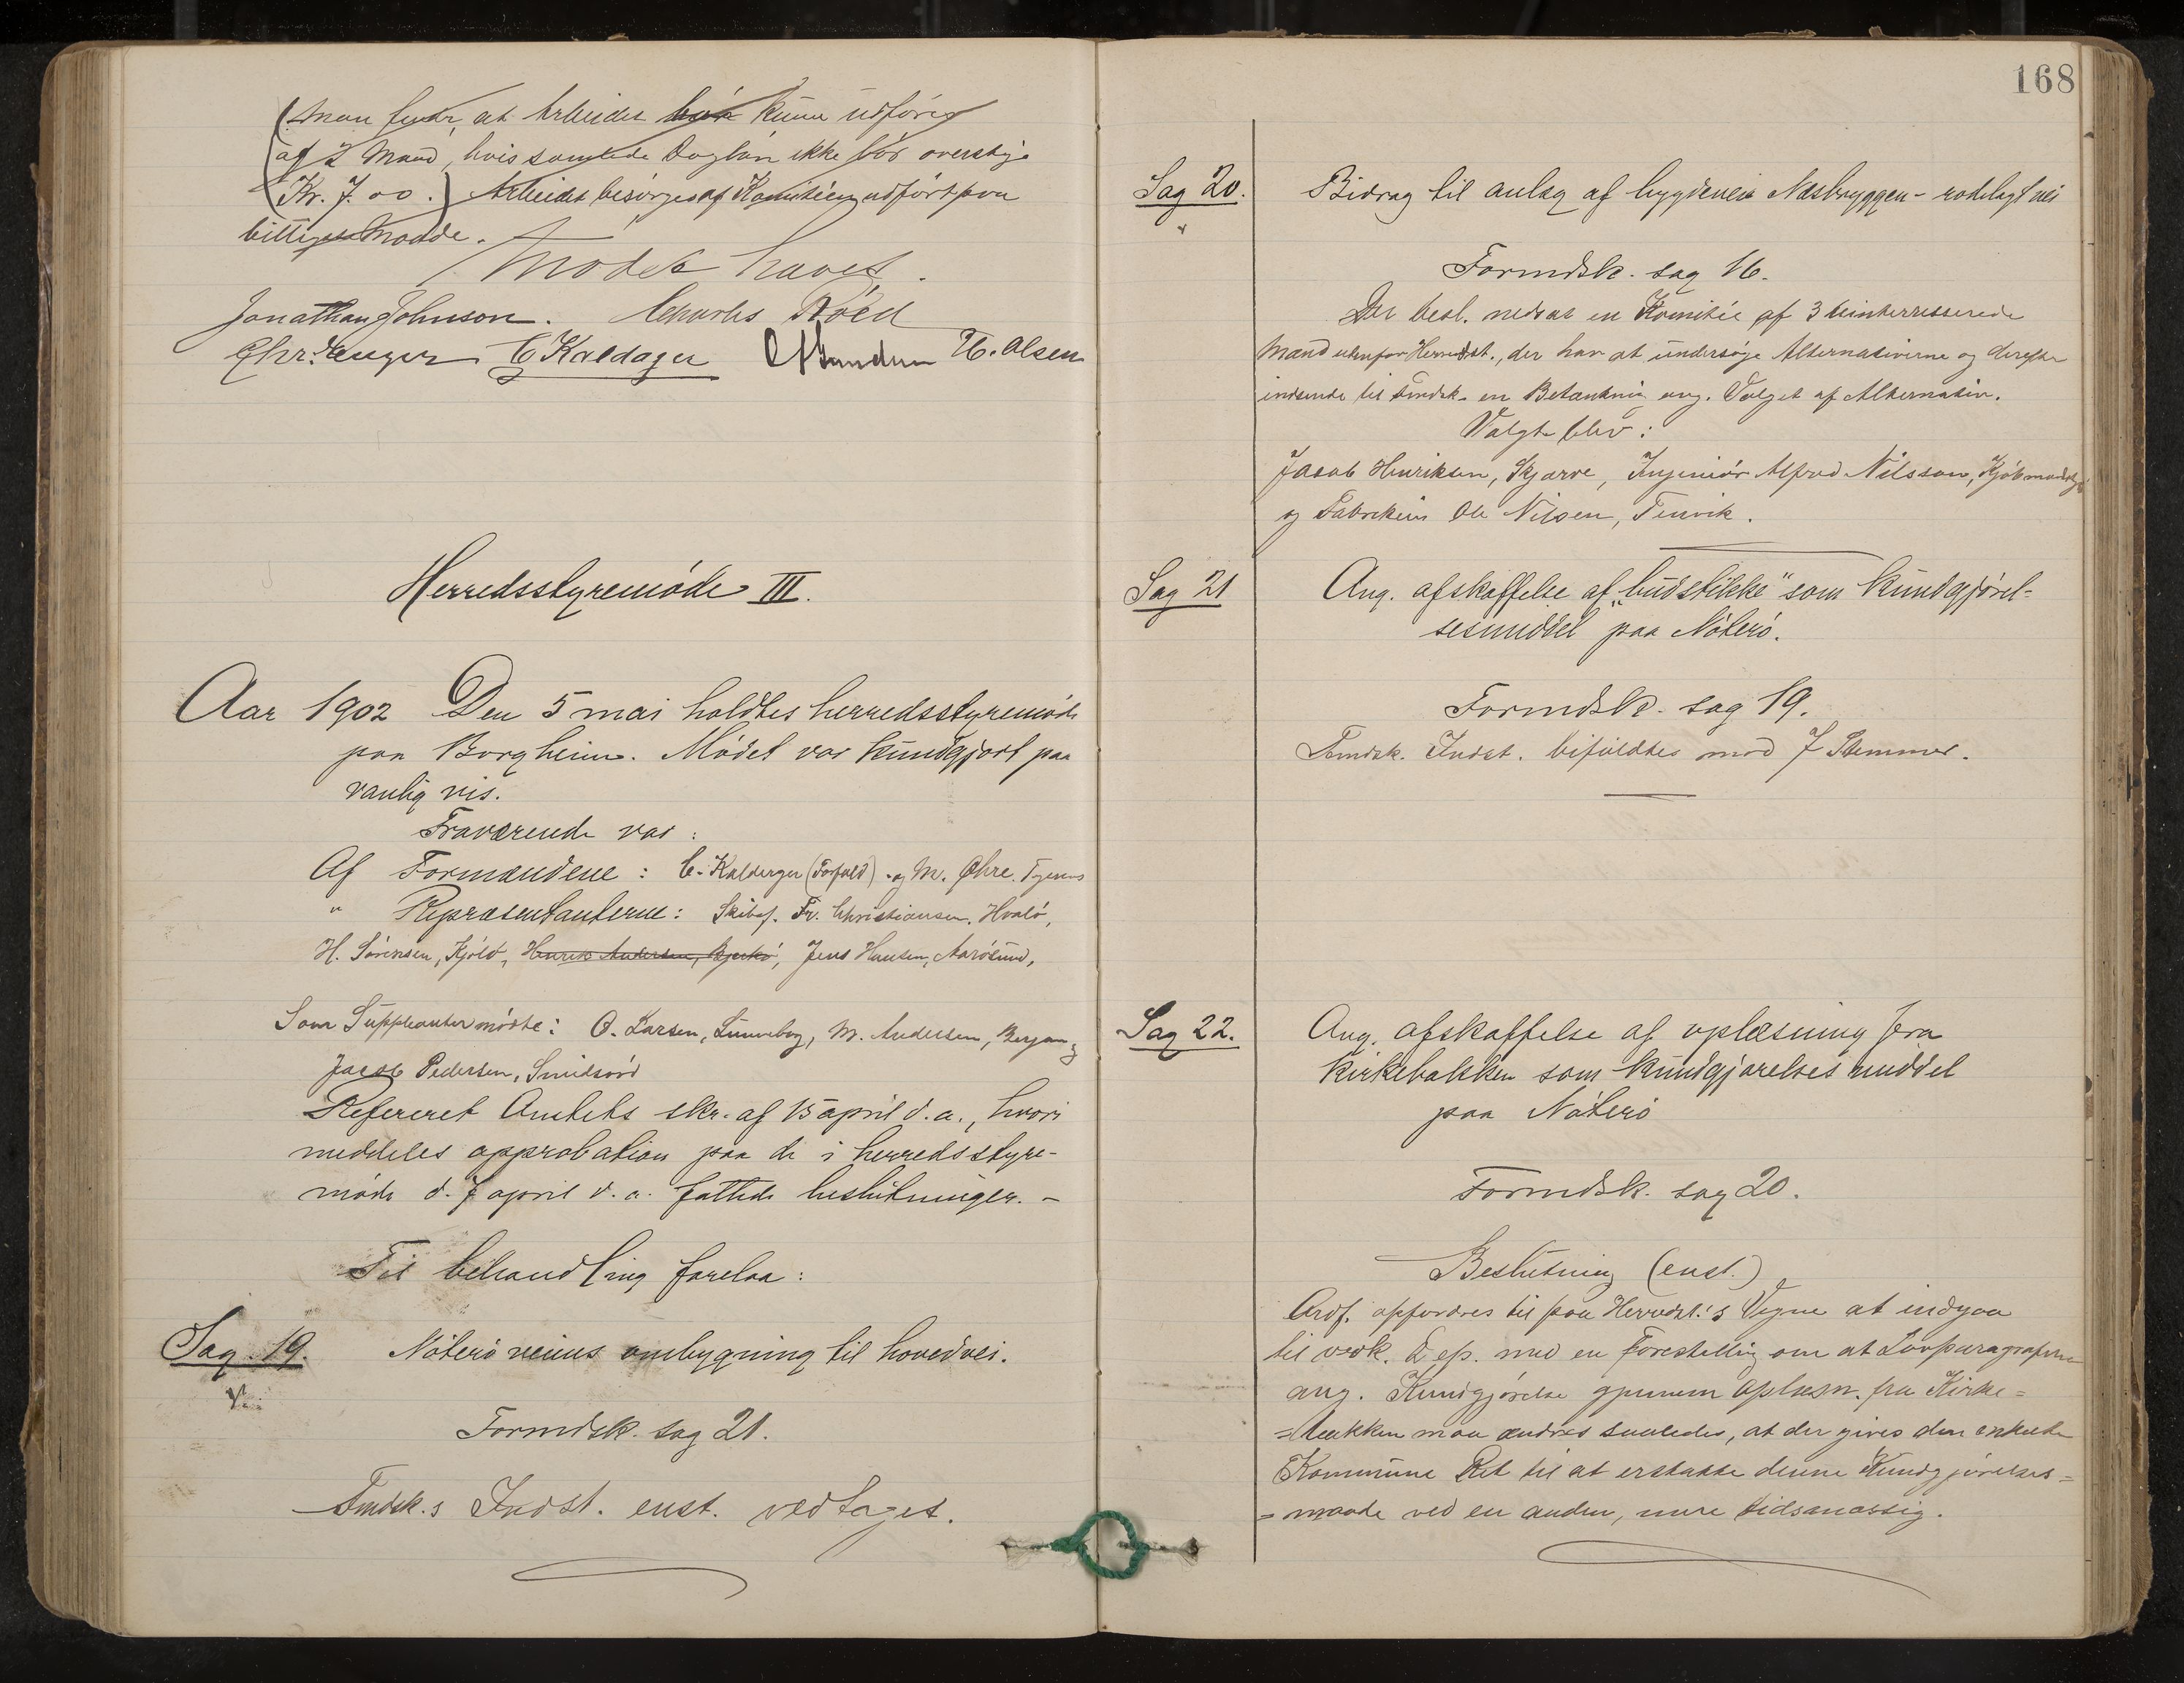 (Man finder, at Arbeidet bør kunne udføres
af 2 Mand, hvis samlede Dagløn ikke bør overstige
Kr. 7.00.) Arbeidet besørges af Komitéen udført paa
billigste Maade.
Mødet hævet.
Jonathan Johnson. Charles Røed
Chr. Unger C Kaldager H. Olsen
Herredsstyremøde III.
Aar 1902 Den 5 mai holdtes herredsstyremøde
paa Borgheim. Mødet var kundgjort paa
vanlig vis.
Fraværende var:
Af Formændene: C. Kaldager (Forfald) og M. Øhre
" Repræsentanterne: Skibsf. Fr. Christiansen, Hvalø,
H. Sørensen, Kjøld, Henrik Andersen, Bjerkø, Jens Hansen, Aarøsund,
Som Suppleanter mødte: O. Larsen, Sunneberg, M. Andersen, Bergan og
Jacob Pedersen, Smidsrød
Refereret Amtets skr. af 15 april d. a., hvori
meddeles approbation paa de i herredsstyre-
møde d. 7 april d. a. fattede beslutninger. -
Til behandling forelaa:
Sag 19. Nøterøveiens ombygning til hovedvei.
Formdsk. sag 21.
Fmdsk.s Indst. enst. vedtaget.
168
Sag 20. Bidrag til anlæg af bygdevei Næsbryggen - rodelagt vei
Formdsk. sag 16.
Der besl. nedsat en Komitée af 3 uinterresserede
Mænd udenfor Herredst., der har at undersøge Alternativerne og derefter
indsende til Fmdsk. en Betænkning ang. Valget af Alternativ.
Valgte blev:
Jacob Henriksen, Skjærve, Ingeniør Alfred Nilsson,
og Fabrikeier Ole Nilsen, Tenvik.
Sag 21 Ang. afskaffelse af "budstikke" som kundgjørel-
sesmiddel paa Nøterø.
Formdsk. sag 19.
Fmdsk. Indst. bifaldtes mod 7 Stemmer.
Sag 22. Ang. afskaffelse af oplæsning fra
kirkebakken som kundgjørelsesmiddel
paa Nøterø
Formdsk. sag 20.
Beslutning (enst.)
Ordf. opfordres til paa Herredst.'s Vegne at indgaa
til vedk. Dep. med en Forestilling om at Lovparagrafen
ang. Kundgjørelse gjennem Oplæsn. fra Kirke=
=bakken maa ændres saaledes, at der gives den enkelte
Kommune Ret til at erstatte denne Kundgjørelses=
=maade ved en anden, mere tidsmæssig.